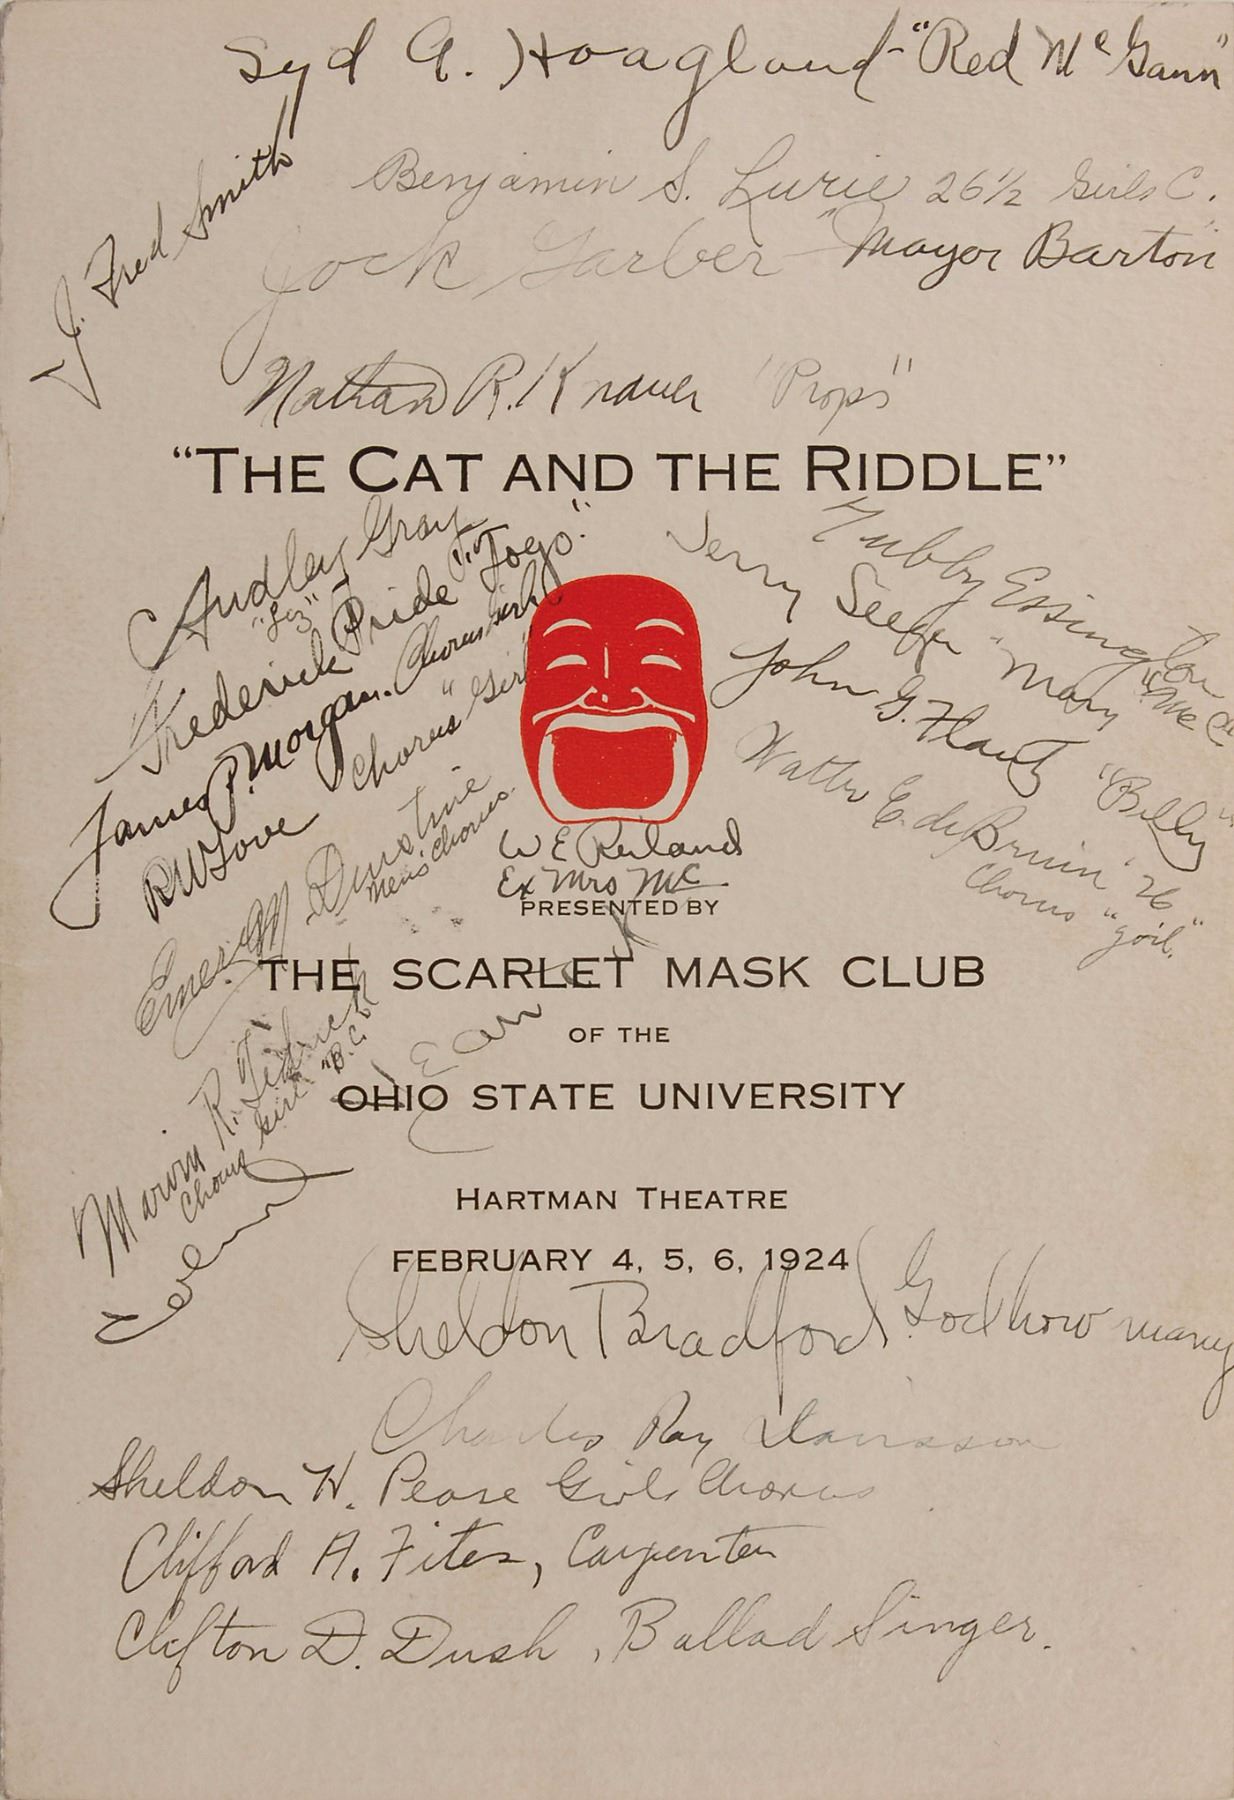 Syd A. Hoagland - "Red McGann"
J. Fred Smith
Benjamin S. Lurie 26½ Girls C.
Jock Garber - "Mayor Barton"
Nathan R. Knauer "Props"
"THE CAT AND THE RIDDLE"
Audley Gray
Frederick Pride "Togo."
James P. Morgan. Chorus Girl
RW Love Chorus "Girl"
Men's Chorus.
Tubby Essington
Jerry "Mary
John G. "Billy"
Walter E. de Bruin '26
Chorus "goil."
W E Reiland
Ex Mrs Mc
PRESENTED BY
THE SCARLET MASK CLUB
OF THE
OHIO STATE UNIVERSITY
Marvin R.
Chorus Girl "B.C."
HARTMAN THEATRE
FEBRUARY 4, 5, 6, 1924
Sheldon Bradford God how many
Charles Ray
Sheldon H. Pease Girls Chorus
Clifford A. Fites, Carpenter
Clifton D. Dush, Ballad Singer.